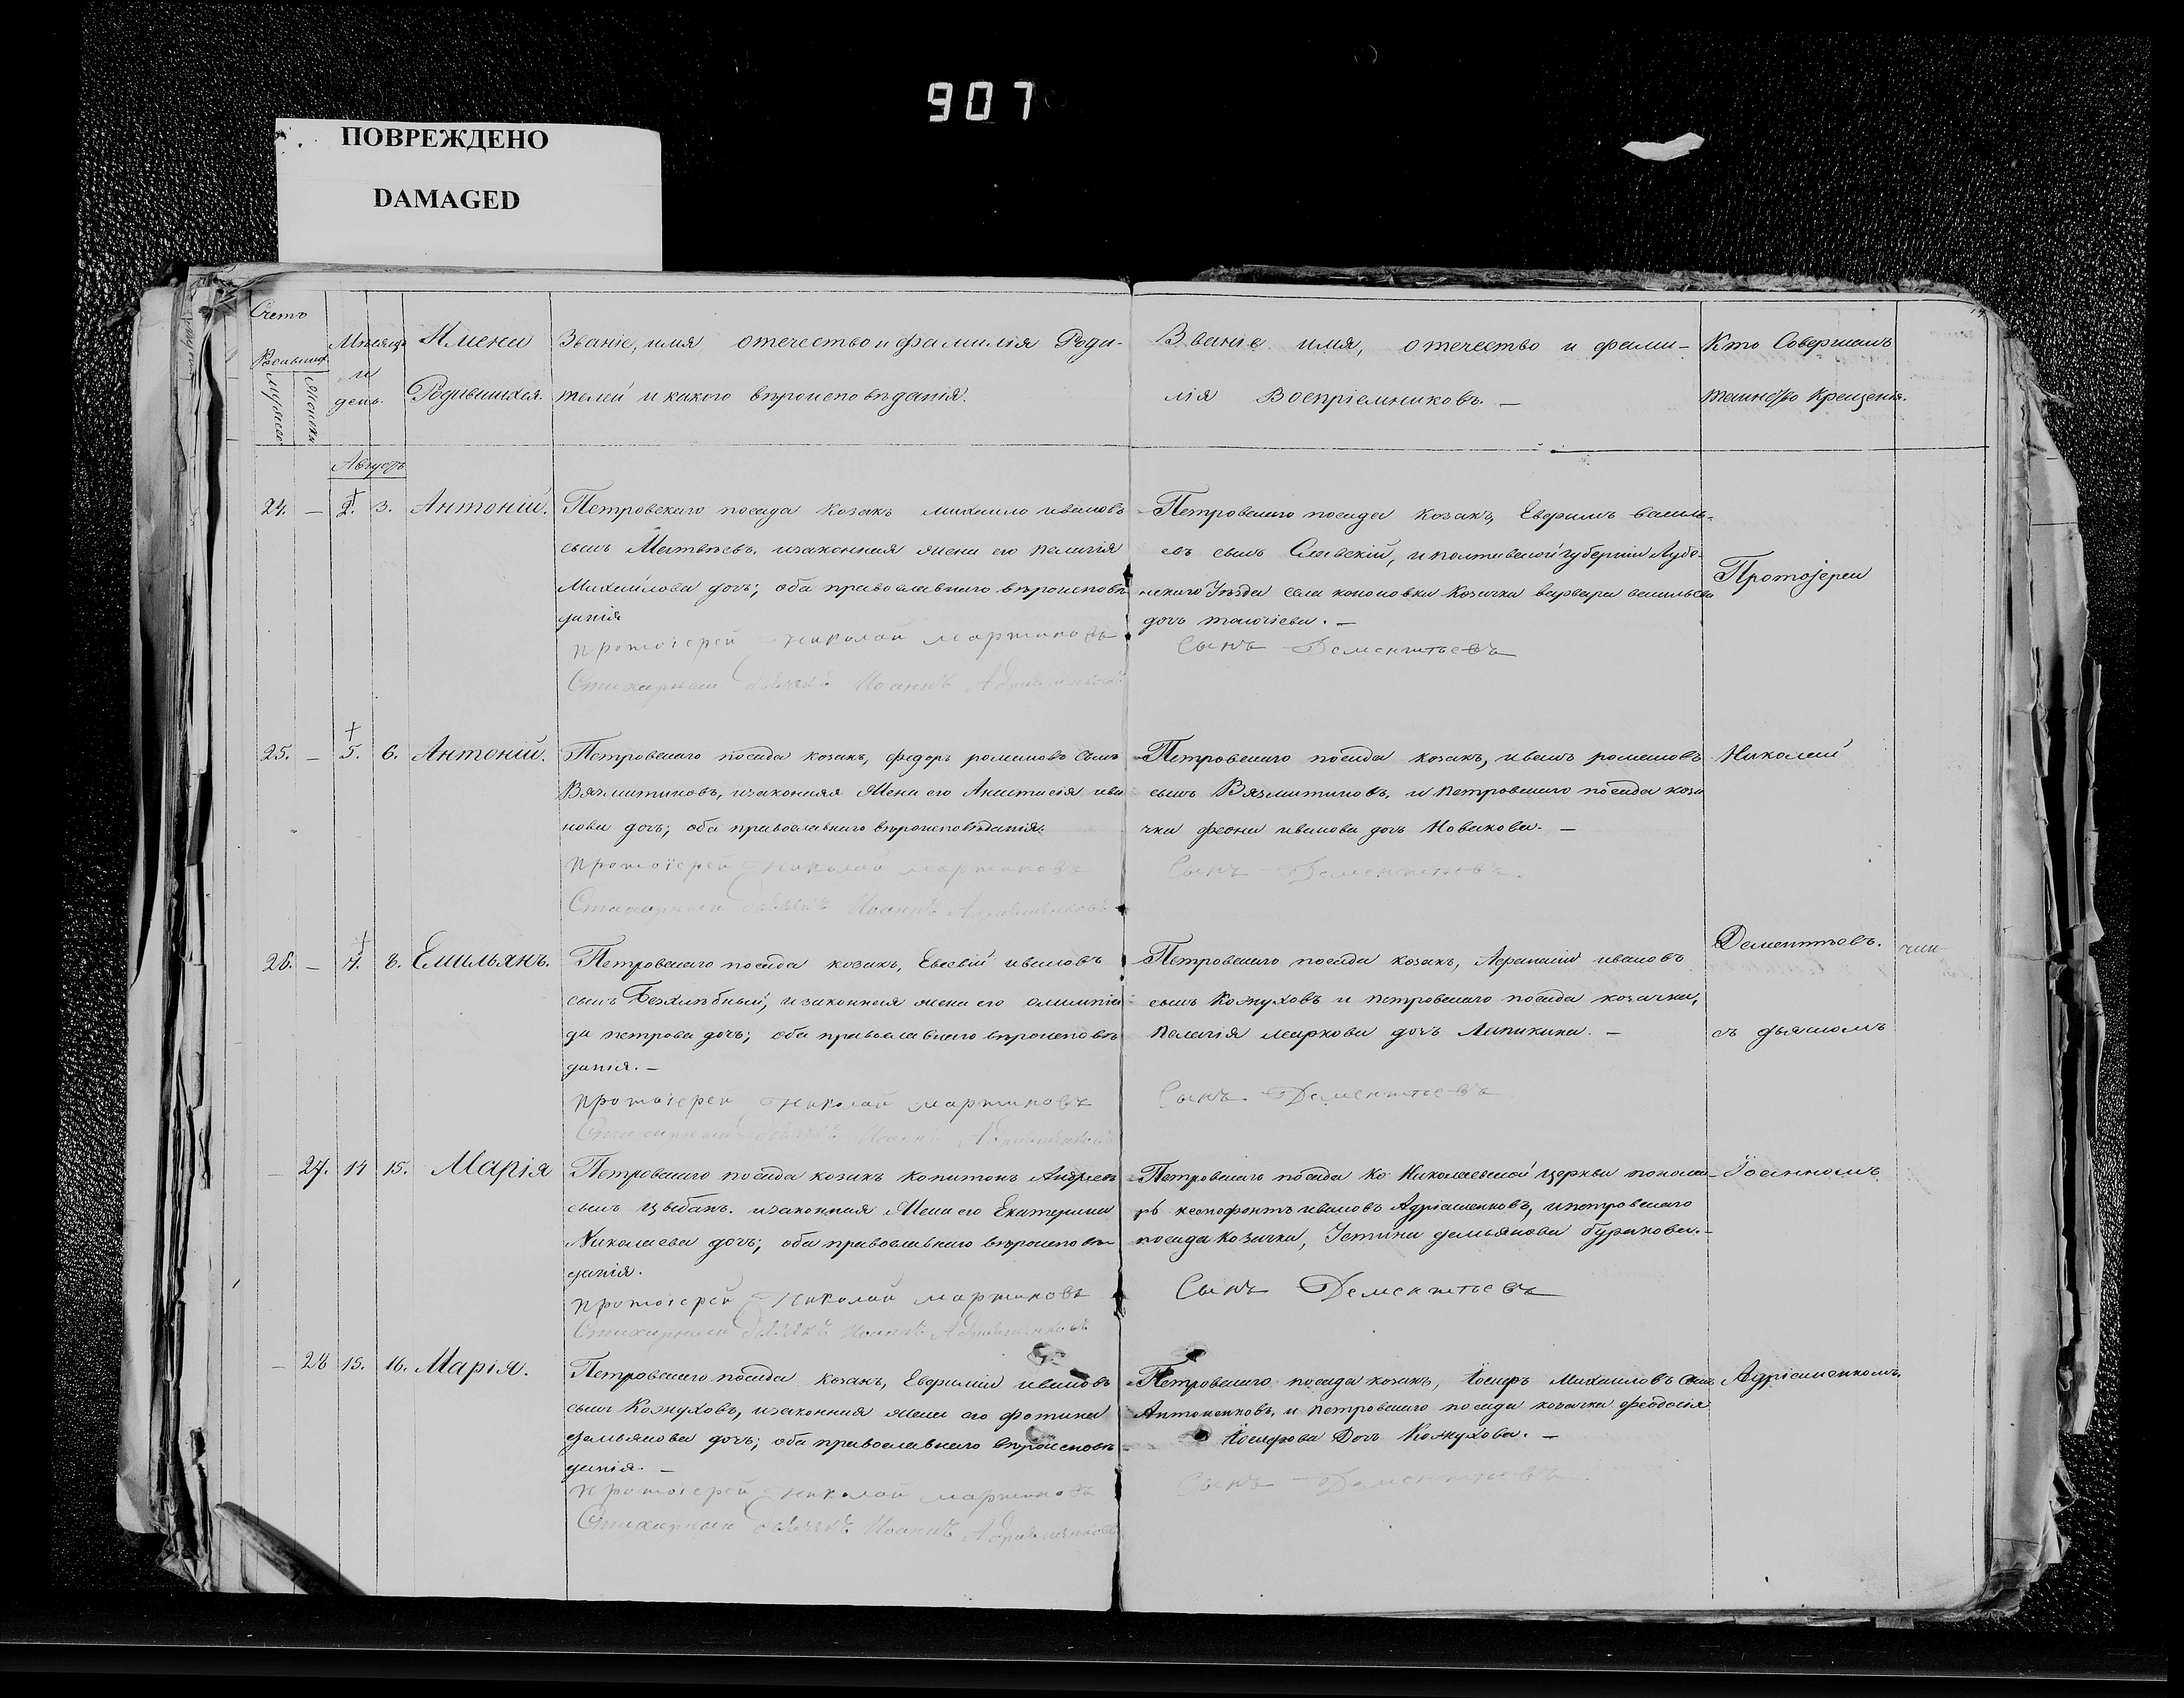 907
ПОВРЕЖДЕНО
DAMAGED
Счетъ
Мѣсяцъ
и
день.
Имена
Родившихся.
Званіе, имя отечество и фамилія Роди-
телей и какого вѣроисповѣданія.
Званіе имя, отечество и фами-
лія Воспріемниковъ. —
Кто Совершалъ
таинство Крещенія.
Августъ
24. — 2. 3. Антоній.
Петровскаго посада козакъ михаило ивановъ
сынъ Матвѣевъ, изаконная жена его пелагія
Михайлова дочь; оба православнаго вѣроисповѣ
данія
протоіерей Николай мартиновъ
Стихарный дьячекъ Иоаннъ
Петровскаго посада козакъ, Евфимъ василь-
евъ сынъ Славскій, иполтавской губерніи Лубе-
нскаго Уѣзда села кононовки Козачка варвара васильева
дочь
Сынъ Дементьевъ
Протоіереи
25. — 5. 6. Антоній.
Петровскаго посада козакъ, федоръ романовъ сынъ
Вязмитиновъ, изаконная жена его Анастасія ива
нова дочь; оба православнаго вѣроисповѣданія.
протоіерей Николай мартиновъ
Стихарный дьячекъ Иоаннъ
Петровскаго посада козакъ, иванъ романовъ
сынъ Вязмитиновъ, и петровскаго посада коза
чка феона иванова дочь Новакова. —
Сынъ Дементьевъ.
Николай
26. — 7. 8. Емильянъ.
Петровскаго посада козакъ, Евсевій ивановъ
сынъ Безхлѣбный, изаконная жена его олимпіа
да петрова дочь; оба православнаго вѣроисповѣ
данія. —
протоіерей Николай мартиновъ
Стихарный дьячекъ Иоаннъ
Петровскаго посада козакъ, Афанасій ивановъ
сынъ Кожуховъ и петровскаго посада козачка,
Пелагія маркова дочь Липикина. —
Сынъ. Дементьевъ
Дементьевъ.
съ дьячкомъ
— 27. 14 15. Марія
Петровскаго посада козакъ Капитонъ Андреевъ
сынъ Цыбань. изаконная Жена его Екатерина
Николаева дочь; оба православнаго вѣроисповѣ
данія.
протоіерей Николай мартиновъ
Стихарный дьячекъ Иоаннъ
Петровскаго посада Ко Николаевской церкви понома-
рь ксенофонтъ ивановъ Адріашенковъ, ипетровскаго
посада Козачка, Устина демьянова Буракова. —
Сынъ Дементьевъ
Іоанномъ
— 28 15. 16. Марія.
Петровскаго посада козакъ, Евфимій ивановъ
сынъ Кожуховъ, изаконная жена его фотина
демьянова дочь; оба православнаго вѣроисповѣ
данія. —
протоіерей Николай мартиновъ
Стихарный дьячекъ Иоаннъ
Петровскаго посада козакъ, Іосифъ Михаиловъ сынъ
Антоненковъ, и петровскаго посада козачка феодосія
Іосифова Дочь Кожухова. —
Сынъ Дементьевъ.
Адріашенкомъ.